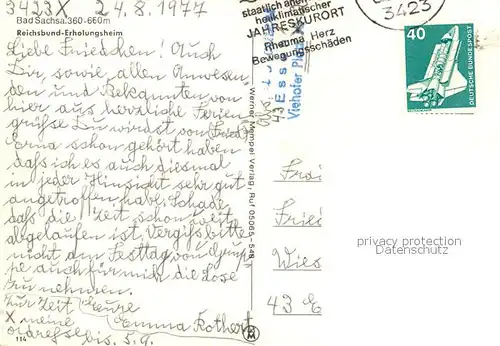 3423 X 24.8.1977
Bad Sachsa. 360-660m
Reichsbund-Erholungsheim
Liebe Friedchen! Auch
Dir, sowie allen Anwesen
den und Bekannten von
hier aus herzliche Ferien
grüße Du wirst von
Erna schon gehört haben
daß ich es auch diesmal
in jeder Hinsicht sehr gut
angetroffen hab. Schade
daß die Zeit schon so weit
abgelaufen ist, Vergiß bitte
nicht am Festtag von
pe auch für mich die Lose
zu nehmen.
Zur Zeit Eure
X meine Emma Rothert
Adresse bis 5.9.
114
Werner Verlag, Ruf
staatlich anerk.
heilklimatischer
JAHRESKURORT
Rheuma, Herz
Bewegungsschäden
3423
Abs.
43 Ess
Viehofer Pl
40
DEUTSCHE BUNDESPOST
privacy protection
Datenschutz
Frau
Fried
Wies
43 E